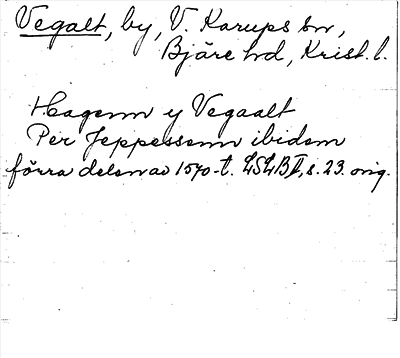 Vegalt, by, V. Karups sn,
Bjäre hd, Krist. l.
Hagenn y Vegaalt
Per Jeppessenn ibidem
förra delen av 1570-t. LSLB II, s. 23. orig.